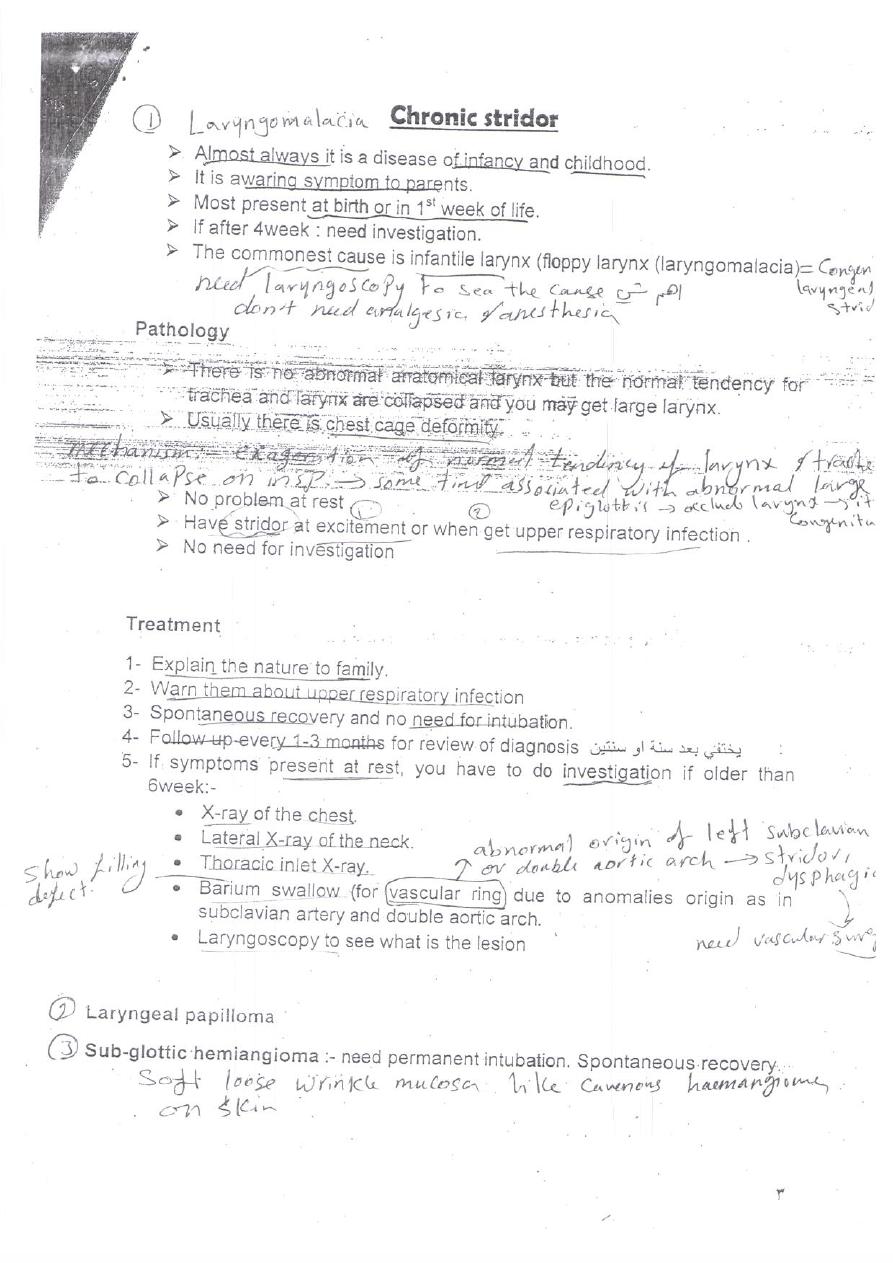 ① Laryngomalacia Chronic stridor
➤ Almost always it is a disease of infancy and childhood.
➤ It is awaring symptom to parents.
➤ Most present at birth or in 1st week of life.
➤ If after 4week : need investigation.
➤ The commonest cause is infantile larynx (floppy larynx (laryngomalacia)= Congen
laryngeal
strid
need laryngoscopy to sea the cause اهم شي
don't need analgesia & anesthesia
Pathology
➤ There is no abnormal anatomical larynx but the normal tendency for
trachea and larynx are collapsed and you may get large larynx.
➤ Usually there is chest cage deformity.
mechanism:- exageration of normal tendency of larynx & trache
to collapse on insp. → some time associated with abnormal large
epiglottis → occlude larynx → it
congenita
➤ No problem at rest
➤ Have stridor at excitement or when get upper respiratory infection .
① ②
➤ No need for investigation
Treatment
1- Explain the nature to family.
2- Warn them about upper respiratory infection
3- Spontaneous recovery and no need for intubation.
4- Follow up every 1-3 months for review of diagnosis يختفي بعد سنة او سنتين
5- If symptoms present at rest, you have to do investigation if older than
6week:-
• X-ray of the chest.
• Lateral X-ray of the neck.
• Thoracic inlet X-ray.
abnormal origin of left subclavian
↑ or double aortic arch → stridor,
dysphagia
show filling
defect.
• Barium swallow (for vascular ring) due to anomalies origin as in
subclavian artery and double aortic arch.
need vascular surg
• Laryngoscopy to see what is the lesion
② Laryngeal papilloma
③ Sub-glottic hemiangioma :- need permanent intubation. Spontaneous recovery.
Soft loose wrinkle mucosa like cavenous haemangioma
on skin
٣